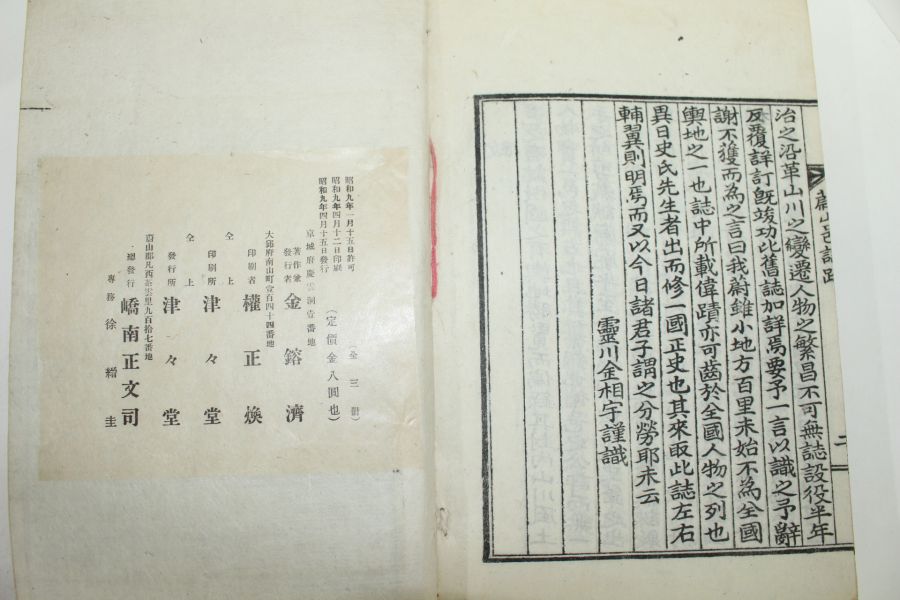 蔚山邑誌跋
二
治之沿革山川之變遷人物之繁昌不可無誌設役半年
反覆詳訂旣竣功比舊誌加詳焉要予一言以識之予辭
謝不獲而為之言曰我蔚雖小地方百里未始不為全國
輿地之一也誌中所載偉蹟亦可齒於全國人物之列也
異日史氏先生者出而修一國正史也其來取此誌左右
輔翼則明焉而又以今日諸君子謂之分勞耶未云
靈川金相宇謹識
昭和九年一月十五日許可
昭和九年四月十二日印刷
昭和九年四月十五日發行
（全三冊）
（定價金八圓也）
京城府慶雲洞壹番地
著作兼發行者 金鎔濟
大邱府南山町壹百四十四番地
印刷者 權正煥
仝上
印刷所 津々堂
仝上
發行所 津々堂
蔚山郡凡西茶雲里九百拾七番地
總發行 嶠南正文司
專務 徐縉圭